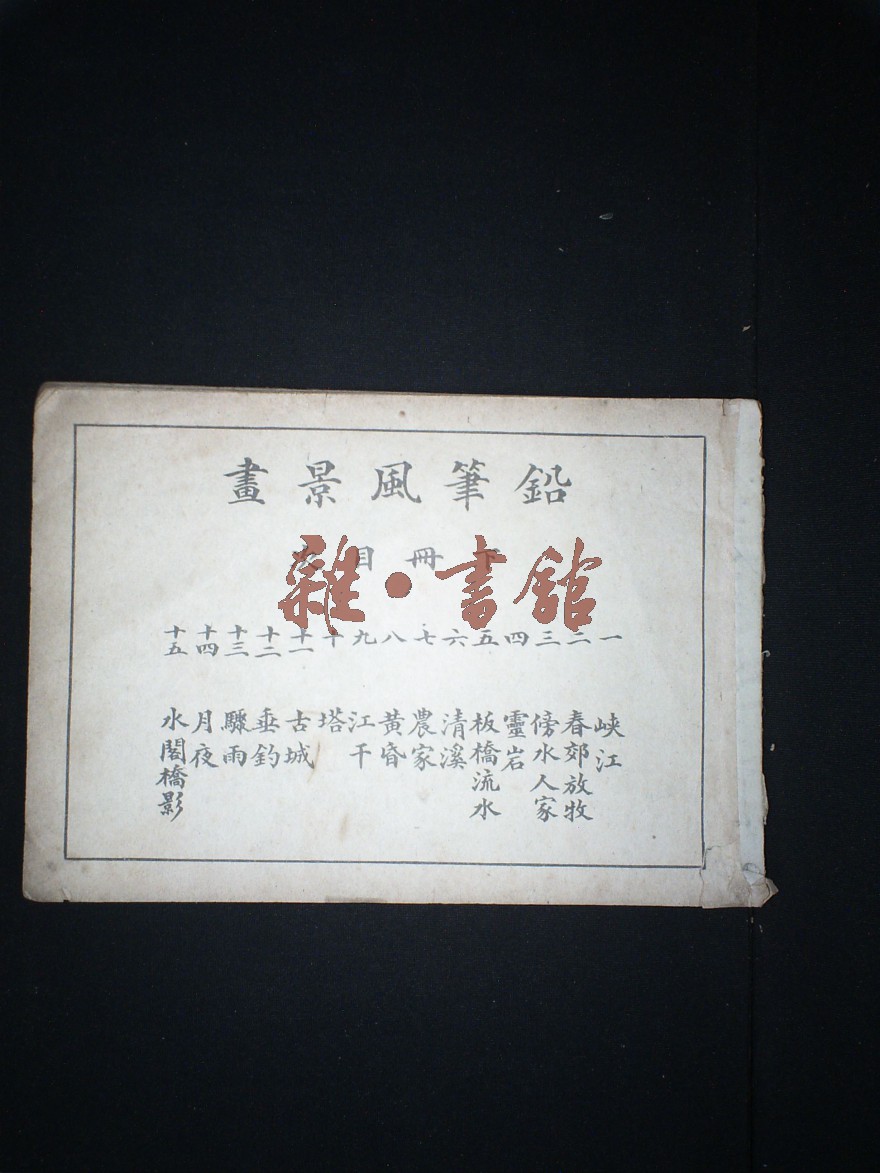 鉛筆風景畫
下冊目次
雜·書館
一 峽江
二 春郊放牧
三 傍水人家
四 靈岩
五 板橋流水
六 清溪
七 農家
八 黄昏
九 江干
十 塔
十一 古城
十二 垂釣
十三 驟雨
十四 月夜
十五 水閣橋影